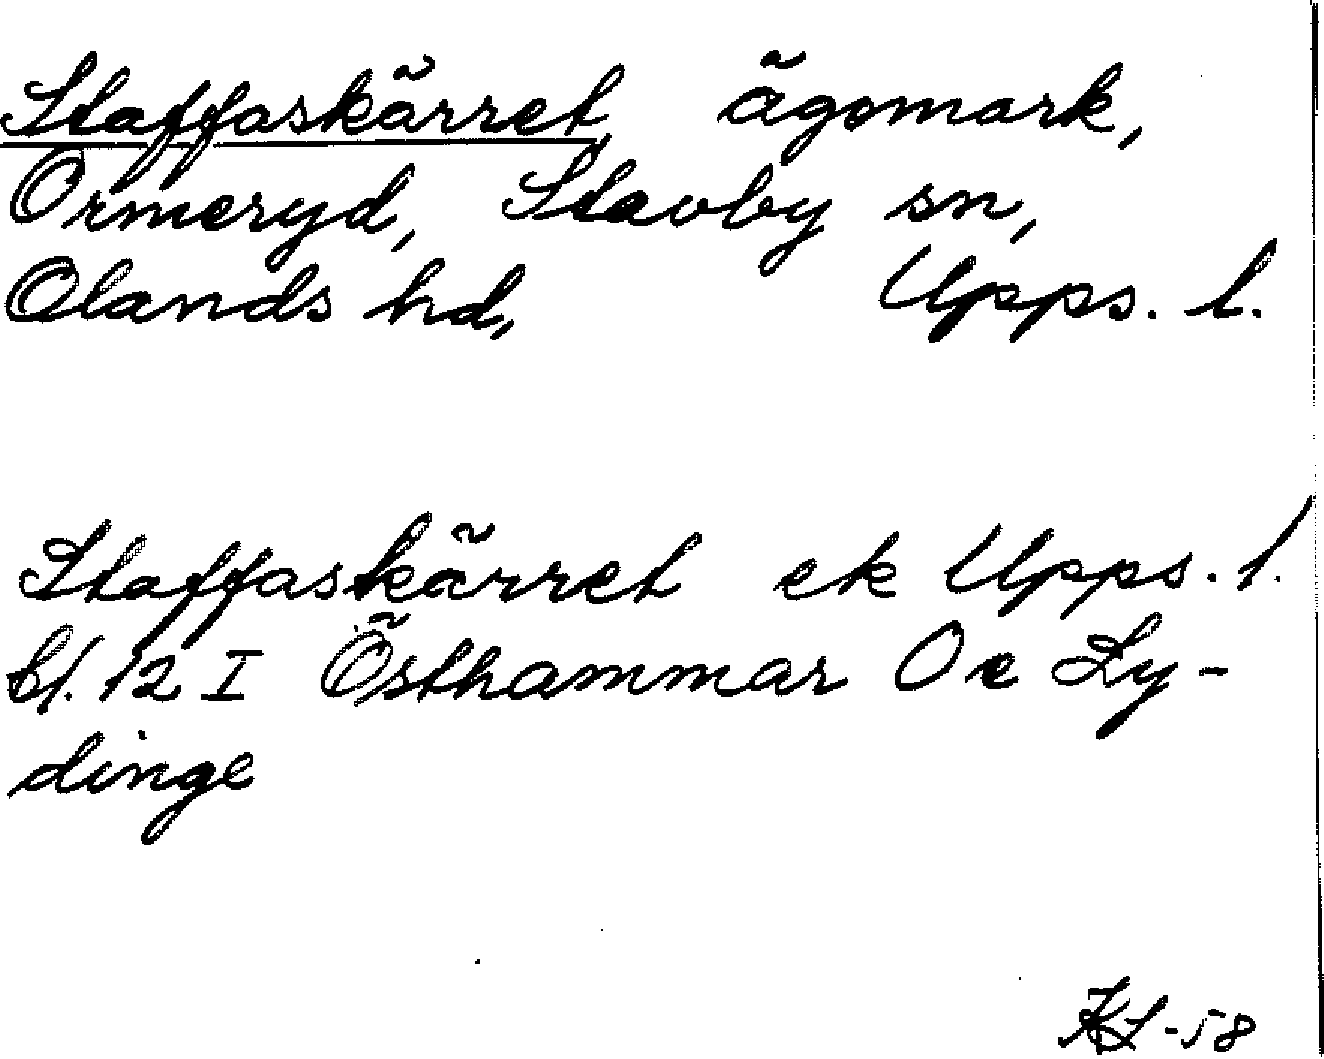 Staffaskärret, ägomark,
Ormeryd, Stavby sn,
Olands hd, Upps. l.
Staffaskärret ek Upps. l.
bl. 12 I Östhammar Oe Ly-
dinge
KL-58